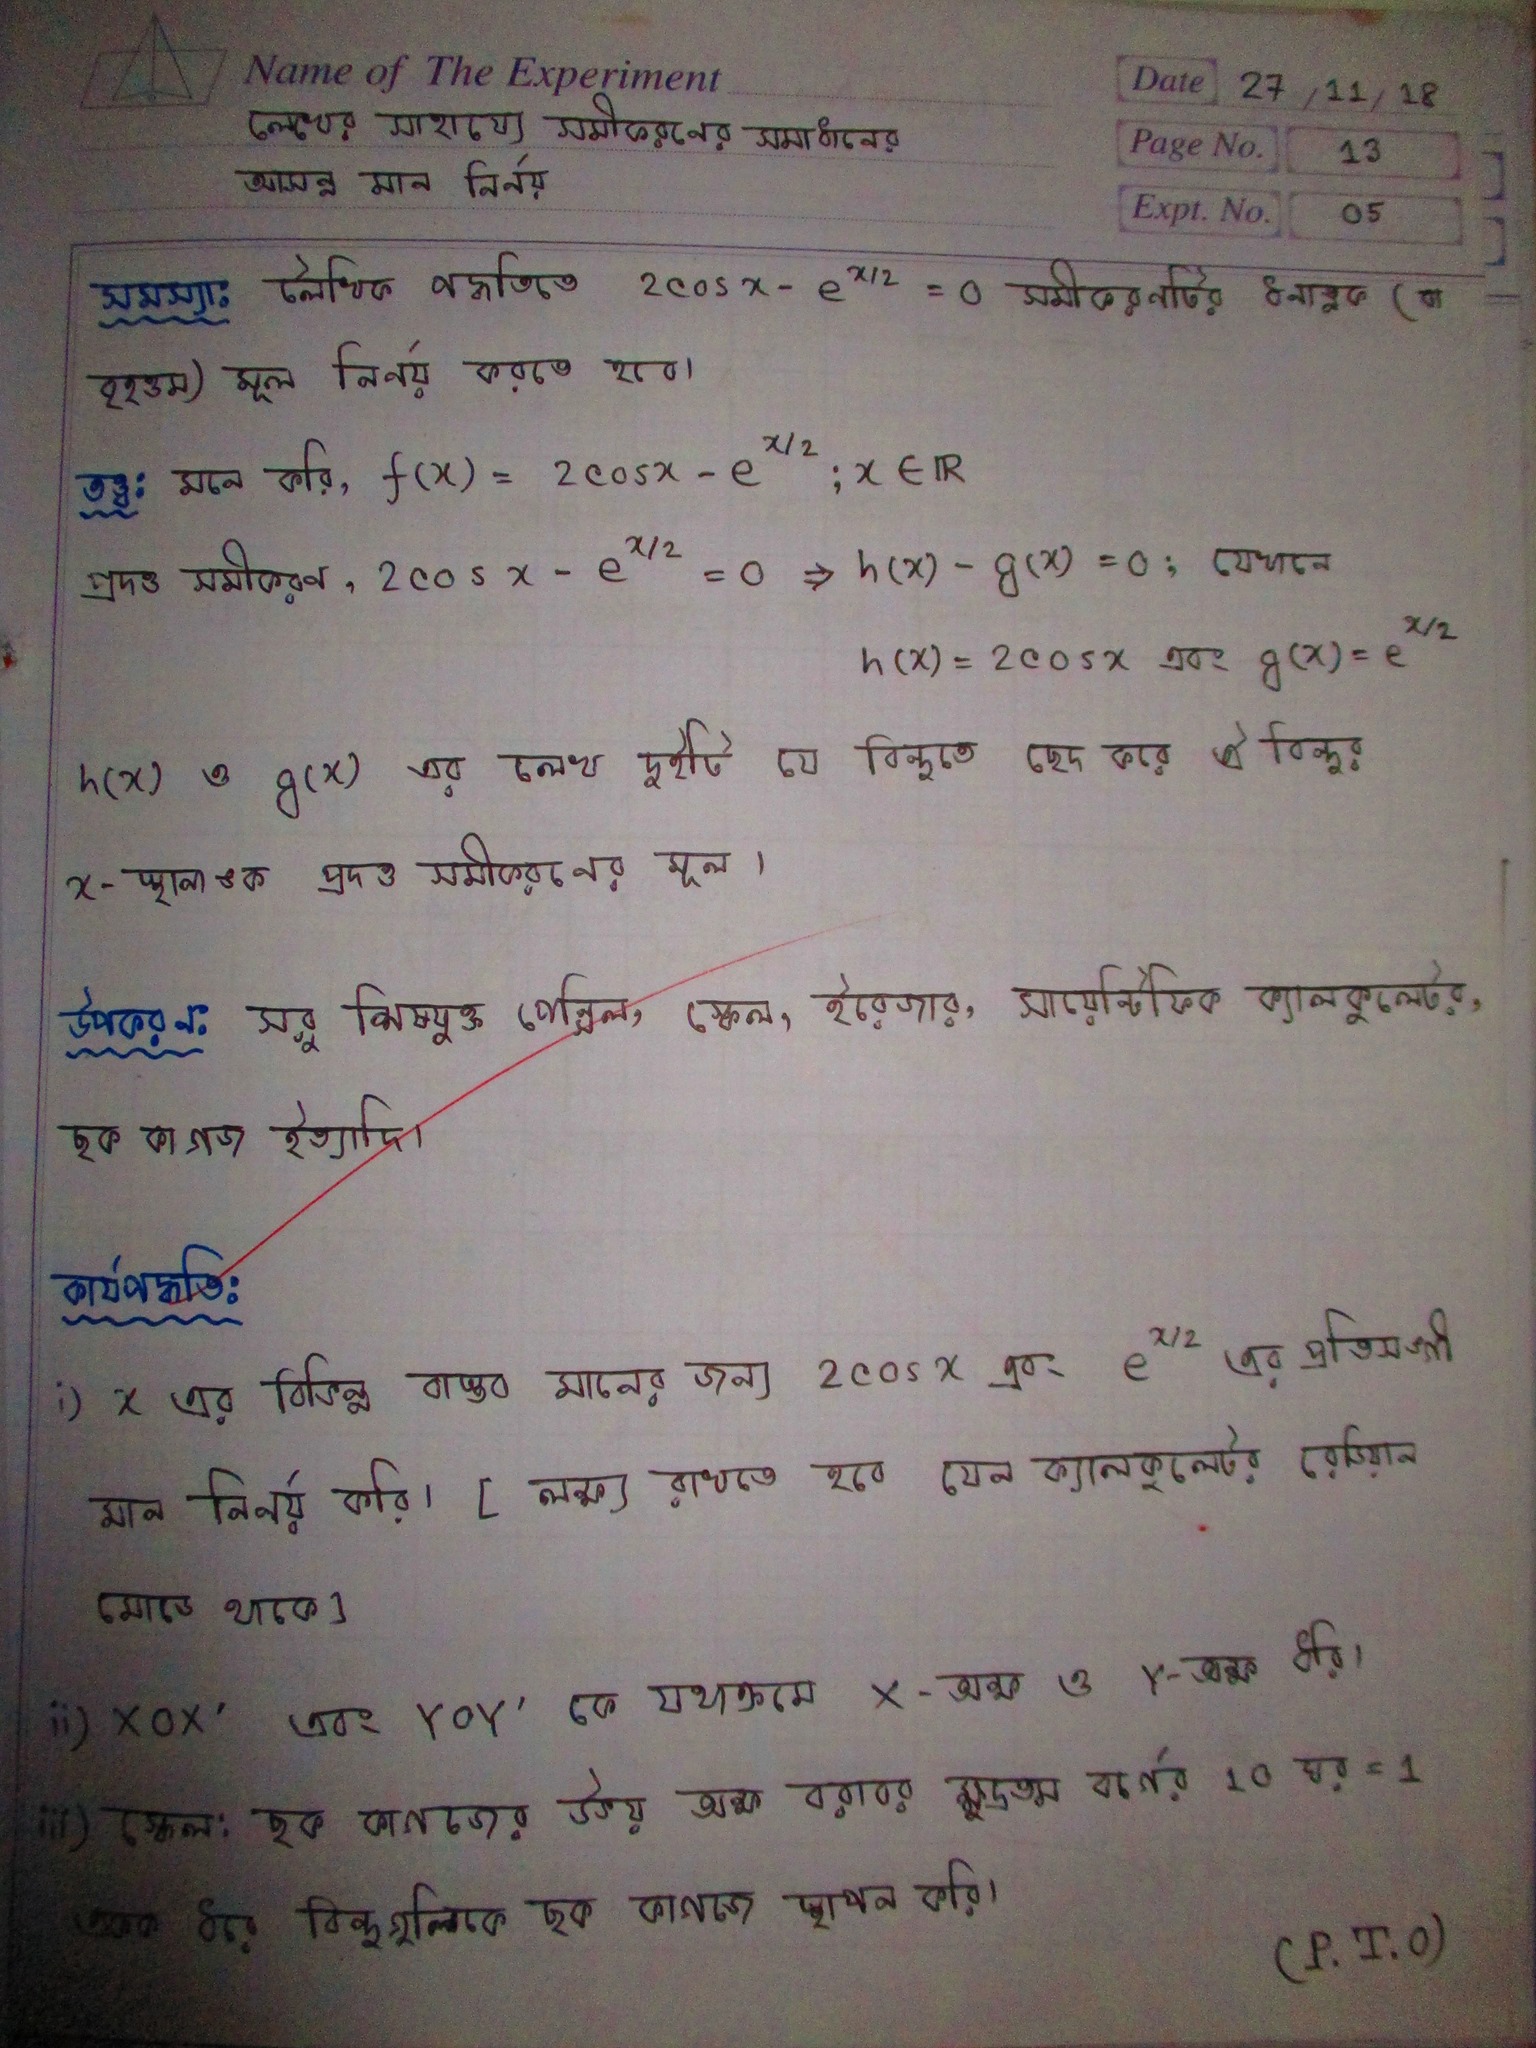 Name of The Experiment
Date 27/11/18
লেখের সাহায্যে সমীকরনের সমাধানের
Page No. 13
আসন্ন মান নির্নয়
Expt. No. 05
সমস্যাঃ লৈখিক পদ্ধতিতে 2cosx - e^x/2 = 0 সমীকরনটির ধনাত্নক (বা
বৃহত্তম) মূল নির্নয় করতে হবে।
তত্ত্বঃ মনে করি, f(x) = 2cosx - e^x/2 ; x ∈ ℝ
প্রদত্ত সমীকরণ, 2cos x - e^x/2 = 0 ⇒ h(x) - g(x) = 0; যেখানে
h(x) = 2cosx এবং g(x) = e^x/2
h(x) ও g(x) এর লেখ দুইটি যে বিন্দুতে ছেদ করে ঐ বিন্দুর
x-স্থানাঙক প্রদত্ত সমীকরনের মূল।
উপকরনঃ সরু শিষযুক্ত পেন্সিল, স্কেল, ইরেজার, সায়েন্টিফিক ক্যালকুলেটর,
ছক কাগজ ইত্যাদি।
কার্যপদ্ধতিঃ
i) x এর বিভিন্ন বাস্তব মানের জন্য 2cosx এবং e^x/2 এর প্রতিসঙ্গী
মান নির্নয় করি। [ লক্ষ্য রাখতে হবে যেন ক্যালকুলেটর রেডিয়ান
মোডে থাকে]
ii) XOX' এবং YOY' কে যথাক্রমে X-অক্ষ ও Y-অক্ষ ধরি।
iii) স্কেল: ছক কাগজের উভয় অক্ষ বরাবর ক্ষুদ্রতম বর্গের 10 ঘর = 1
একক ধরে বিন্দুগুলিকে ছক কাগজে স্থাপন করি।
(P.T.O)